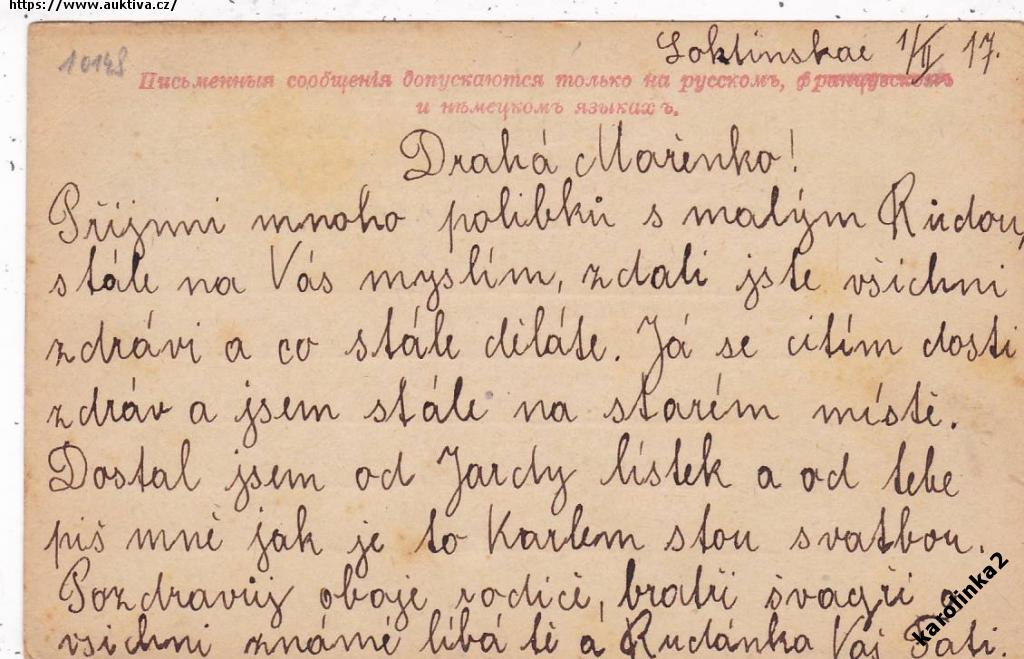 https://www.auktiva.cz/
10148
Loktinskae 1/II 17.
Письменныя сообщенія допускаются только на русскомъ, французскомъ
и нѣмецкомъ языкахъ.
Drahá Mařenko!
Přijmi mnoho polibků s malým Rudou,
stále na Vás myslím, zdali jste všichni
zdrávi a co stále děláte. Já se cítím dosti
zdráv a jsem stále na starém místě.
Dostal jsem od Jardy lístek a od tebe
piš mně jak je to Karlem stou svatbou.
Pozdravuj oboje rodiče, bratři švagři a
všichni známé líbá tě a Rudánka Váš Tati.
karolinka2